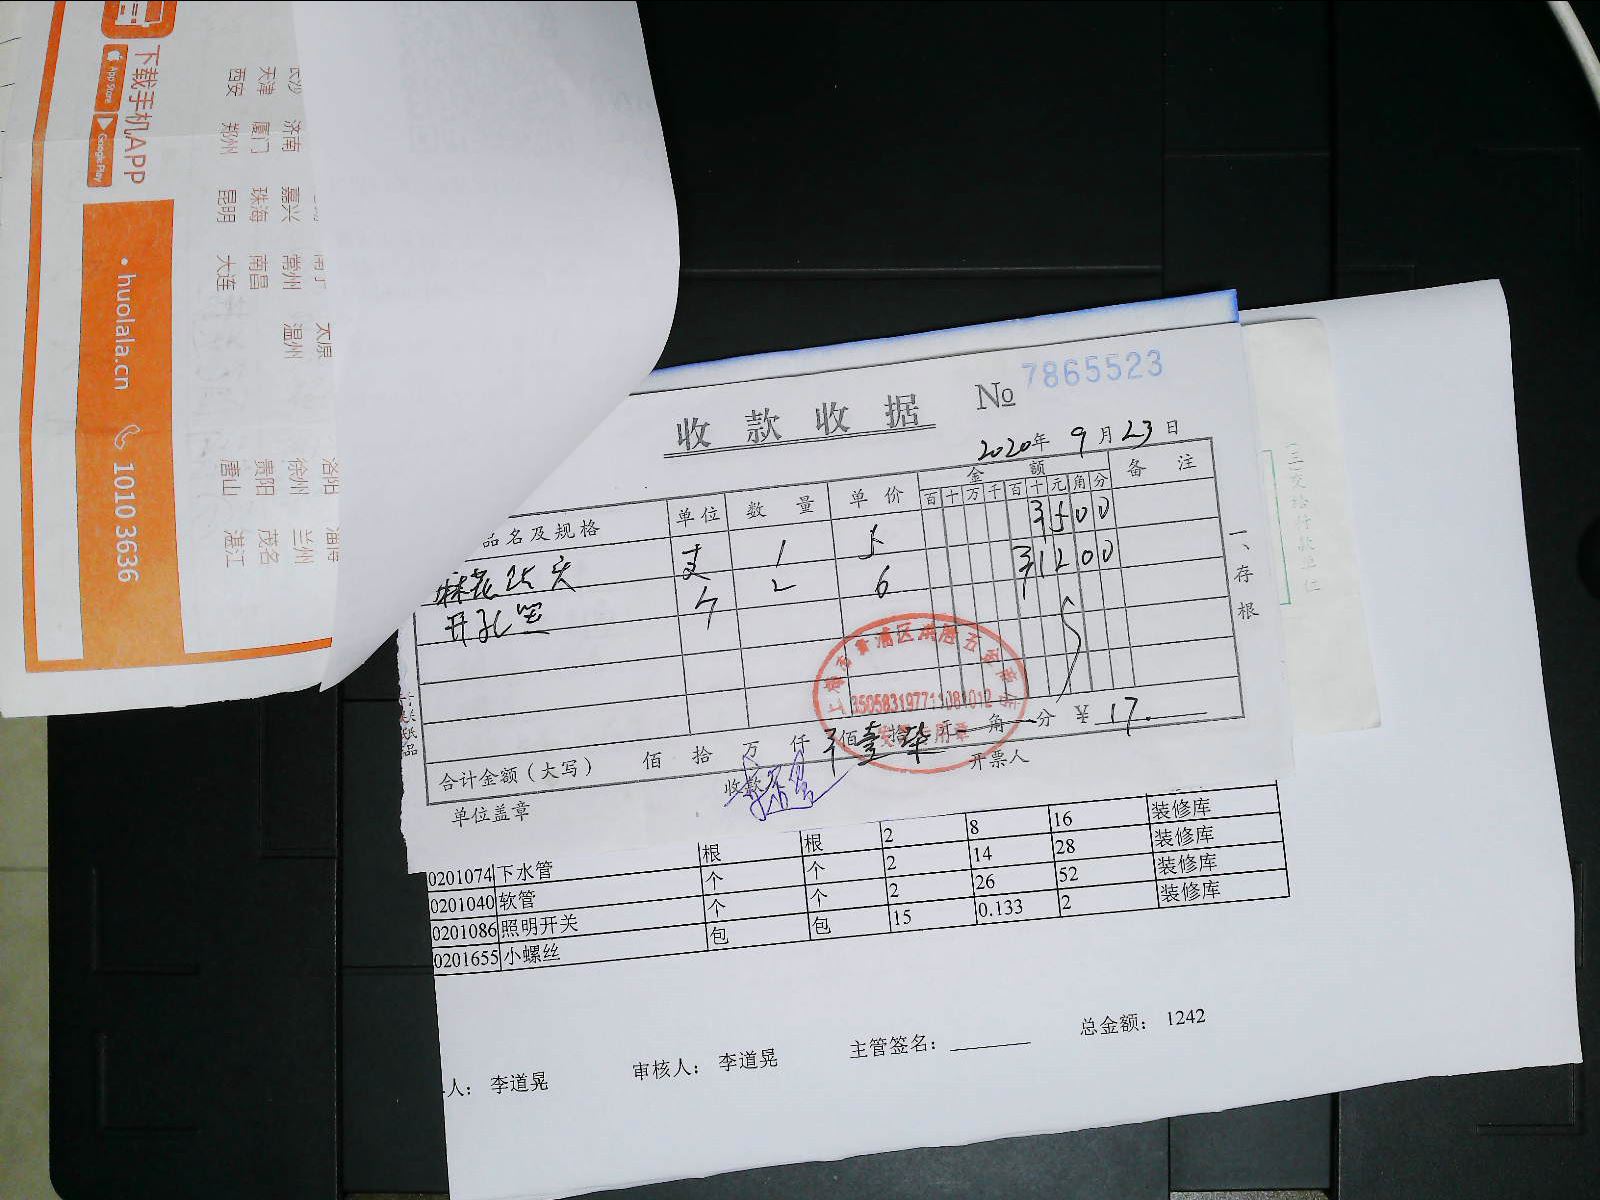 下载手机APP
App Store
Google Play
huolala.cn
1010 3636
长沙 济南 嘉兴 常州 温州 徐州 兰州
天津 厦门 珠海 南昌 贵阳 茂名
西安 郑州 昆明 大连 唐山 湛江
太原 洛阳 淄博
收款收据 № 7865523
2020年 9月 23日
品名及规格 单位 数量 单价 金额 备注
百十万千百十元角分
支 1 5 ¥500
开孔 个 2 6 ¥1200
一、存根
合计金额(大写) 佰 拾 万 仟 佰 壹拾 柒元 角 分 ¥ 17.
350583197711081012
单位盖章 收款 开票人
(三)交给付款单位
根 根 2 8 16 装修库
0201074 下水管 个 个 2 14 28 装修库
0201040 软管 个 个 2 26 52 装修库
0201086 照明开关 包 包 15 0.133 2 装修库
0201655 小螺丝
人: 李道晃 审核人: 李道晃 主管签名: 总金额: 1242